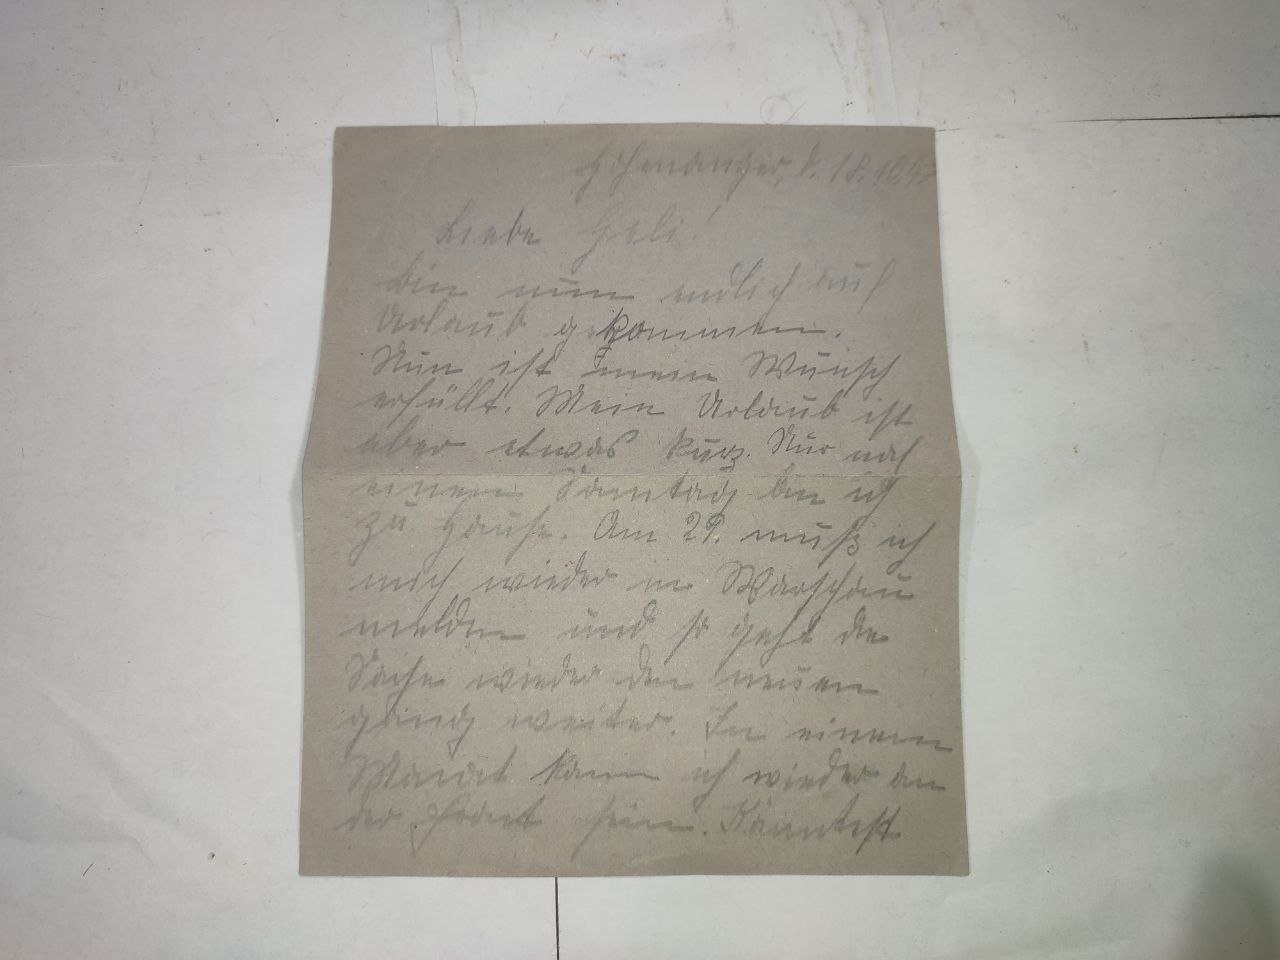 Hohenanger, d. 18.10.43
Liebe Heli!
Bin nun endlich auf
Urlaub gekommen.
Nun ist mein Wunsch
erfüllt. Mein Urlaub ist
aber etwas kurz. Nur
einen Sonntag bin ich
zu Hause. Am 29. muß ich
mich wieder in Warschau
melden und so geht die
Sache wieder den neuen
gang weiter. In einem
Monat kann ich wieder an
der Front sein. Könntest